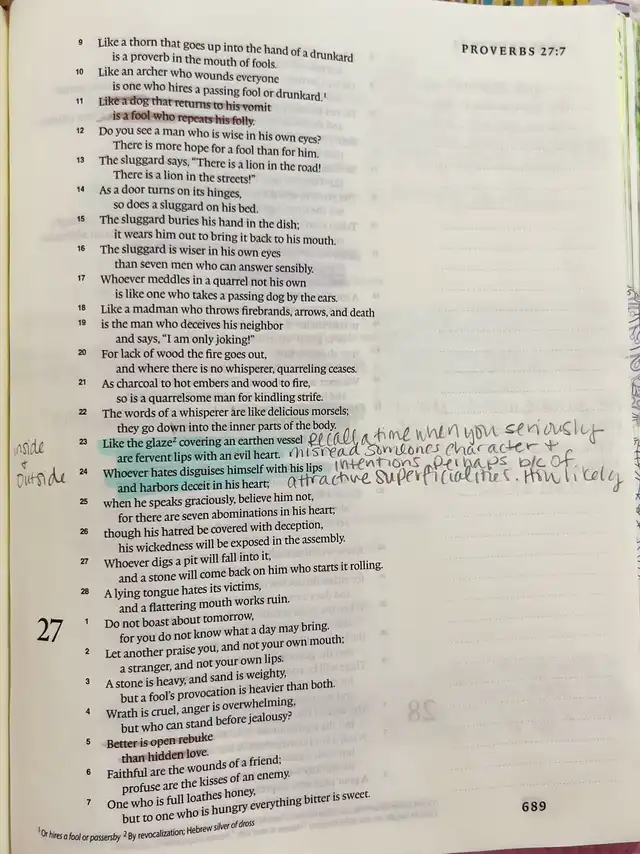 PROVERBS 27:7
9 Like a thorn that goes up into the hand of a drunkard
is a proverb in the mouth of fools.
10 Like an archer who wounds everyone
is one who hires a passing fool or drunkard.1
11 Like a dog that returns to his vomit
is a fool who repeats his folly.
12 Do you see a man who is wise in his own eyes?
There is more hope for a fool than for him.
13 The sluggard says, “There is a lion in the road!
There is a lion in the streets!”
14 As a door turns on its hinges,
so does a sluggard on his bed.
15 The sluggard buries his hand in the dish;
it wears him out to bring it back to his mouth.
16 The sluggard is wiser in his own eyes
than seven men who can answer sensibly.
17 Whoever meddles in a quarrel not his own
is like one who takes a passing dog by the ears.
18 Like a madman who throws firebrands, arrows, and death
19 is the man who deceives his neighbor
and says, “I am only joking!”
20 For lack of wood the fire goes out,
and where there is no whisperer, quarreling ceases.
21 As charcoal to hot embers and wood to fire,
so is a quarrelsome man for kindling strife.
22 The words of a whisperer are like delicious morsels;
they go down into the inner parts of the body.
23 Like the glaze2 covering an earthen vessel
are fervent lips with an evil heart.
24 Whoever hates disguises himself with his lips
and harbors deceit in his heart;
25 when he speaks graciously, believe him not,
for there are seven abominations in his heart;
26 though his hatred be covered with deception,
his wickedness will be exposed in the assembly.
27 Whoever digs a pit will fall into it,
and a stone will come back on him who starts it rolling.
28 A lying tongue hates its victims,
and a flattering mouth works ruin.
27 1 Do not boast about tomorrow,
for you do not know what a day may bring.
2 Let another praise you, and not your own mouth;
a stranger, and not your own lips.
3 A stone is heavy, and sand is weighty,
but a fool’s provocation is heavier than both.
4 Wrath is cruel, anger is overwhelming,
but who can stand before jealousy?
5 Better is open rebuke
than hidden love.
6 Faithful are the wounds of a friend;
profuse are the kisses of an enemy.
7 One who is full loathes honey,
but to one who is hungry everything bitter is sweet.
1 Or hires a fool or passersby 2 By revocalization; Hebrew silver of dross
689
inside
+
outside
Recall a time when you seriously
misread someones character +
intentions, perhaps b/c of
attractive superficialities. How likely